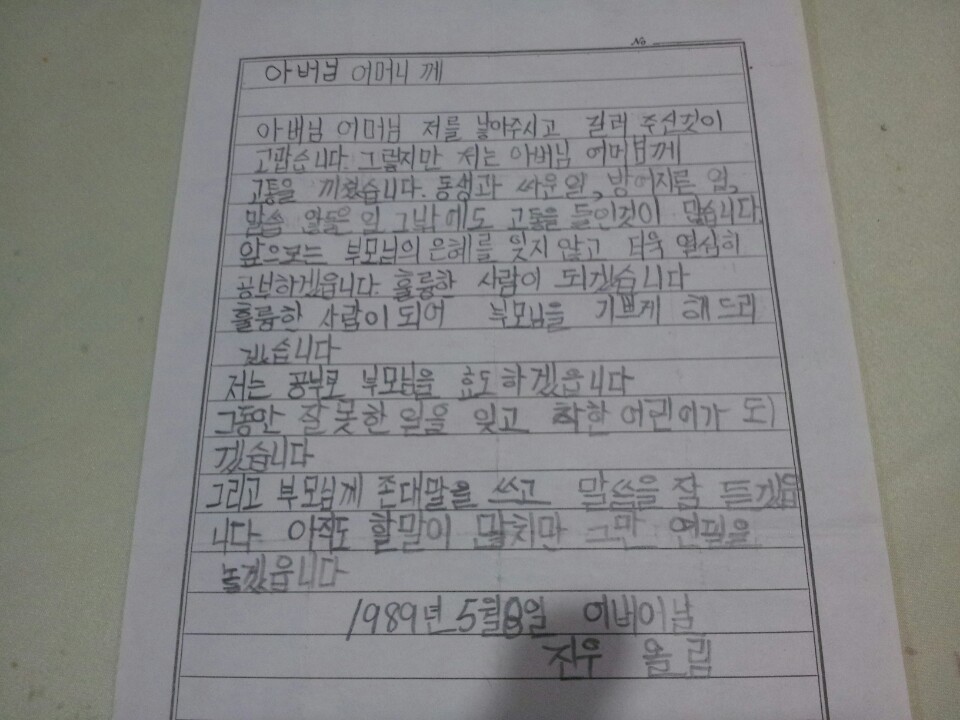 No
아버님 어머니 께
아버님 어머님 저를 낳아주시고 길러 주신것이
고맙습니다. 그렇지만 저는 아버님 어머님께
고통을 끼쳤습니다. 동생과 싸운일, 방어지른 일,
말씀 않들은 일 그밖에도 고통을 들인것이 많습니다.
앞으로는 부모님의 은혜를 잊지 않고 더욱 열심히
공부하겠읍니다. 훌륭한 사람이 되겠습니다
훌륭한 사람이 되어 부모님을 기쁘게 해 드리
겠습니다
저는 공부로 부모님을 효도하겠읍니다
그동안 잘못한 일을 잊고 착한 어린이가 되
겠습니다
그리고 부모님께 존대말을 쓰고 말씀을 잘 듣겠읍
니다. 아직도 할말이 많치만 그만 연필을
놓겠읍니다
1989년 5월8일 어버이날
진우 올림